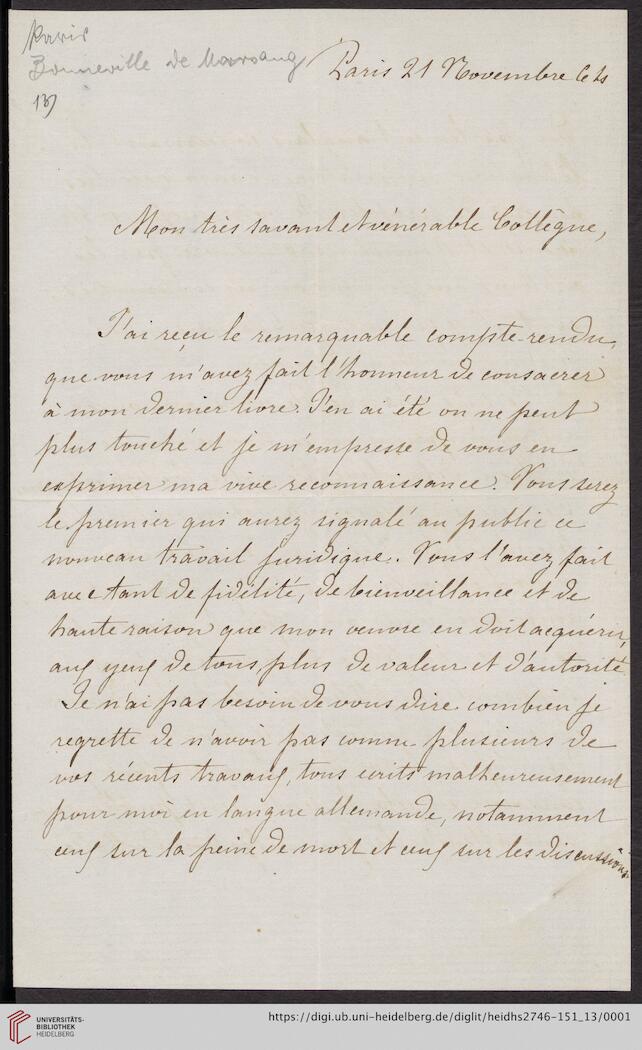 Paris
Bonneville de Marsang
13)
Paris 21 Novembre 64
Mon très savant et vénérable Collègue,
J'ai reçu le remarquable compte-rendu,
que vous m'avez fait l'honneur de consacrer
à mon dernier livre. J'en ai été on ne peut
plus touché et je m'empresse de vous en
exprimer ma vive reconnaissance. Vous serez
le premier qui aurez signalé au public ce
nouveau travail juridique. Vous l'avez fait
avec tant de fidélité, de bienveillance et de
haute raison que mon oeuvre en doit acquérir,
aux yeux de tous, plus de valeur et d'autorité
Je n'ai pas besoin de vous dire combien je
regrette de n'avoir pas connu plusieurs de
vos récents travaux, tous écrits malheureusement
pour moi en langue allemande, notamment
ceux sur la peine de mort et ceux sur les discussions
UNIVERSITÄTS-
BIBLIOTHEK
HEIDELBERG
https://digi.ub.uni-heidelberg.de/diglit/heidhs2746-151_13/0001